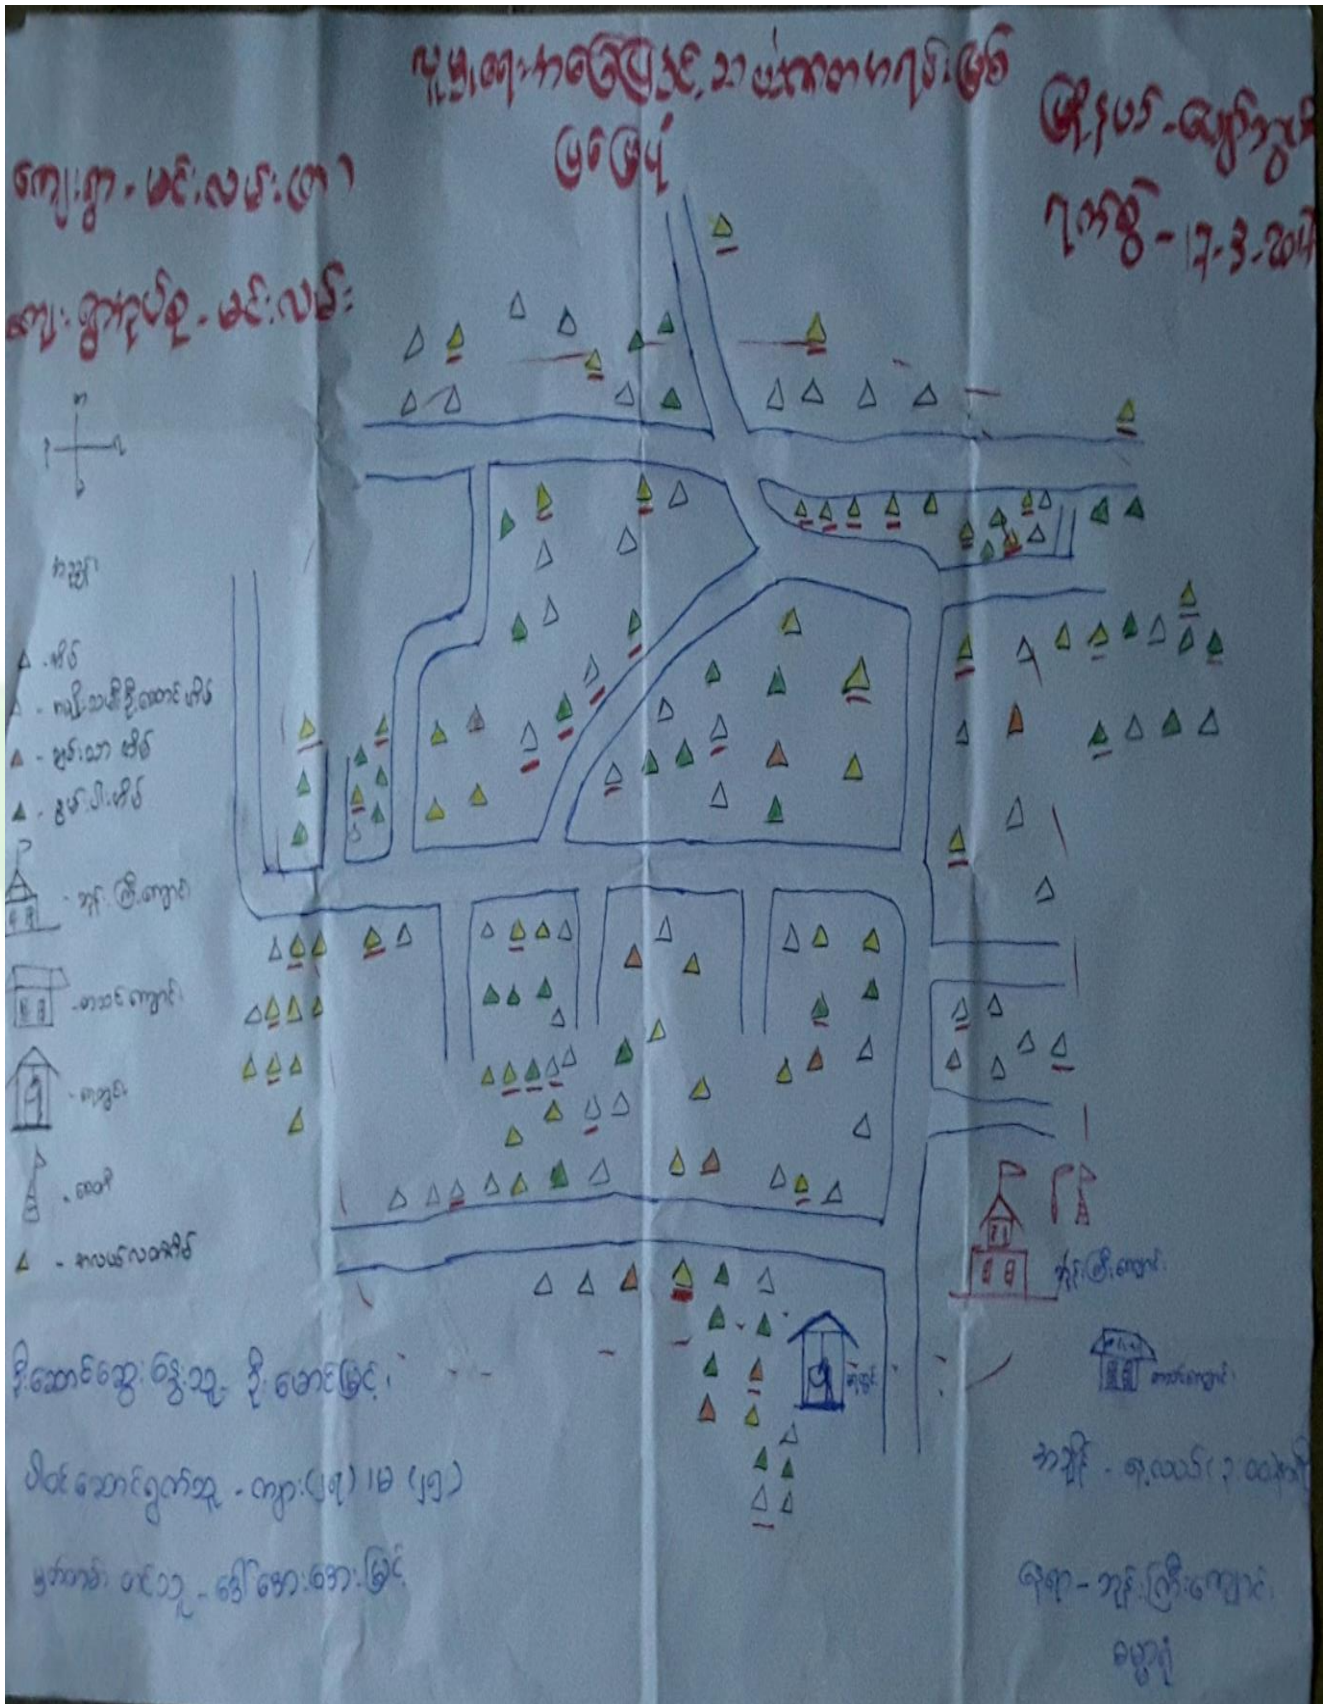 လူမှုရေးအခြေပြနှင့် သယံဇာတအရင်းအမြစ်
ပြမြေပုံ
ကျေးရွာ - မင်းလမ်း
ကျေးရွာအုပ်စု - မင်းလမ်း
မြို့နယ် -
ရက်စွဲ - 17-3-201
အညွှန်း
- အိမ်
- အမျိုးသမီးဦးဆောင်အိမ်
- ချမ်းသာအိမ်
- နွမ်းပါးအိမ်
- ဘုန်းကြီးကျောင်း
- စာသင်ကျောင်း
- ရေတွင်း
- စေတီ
- အလယ်လတ်အိမ်
ဘုန်းကြီးကျောင်း
စာသင်ကျောင်း
ရေတွင်း
ဦးဆောင်ဆွေးနွေးသူ - ဦးမောင်မြင့်
ပါဝင်ဆောင်ရွက်သူ - ကျား(၂၇) ၊ မ (၂၅)
မှတ်တမ်းတင်သူ - ဒေါ်အေးအေးမြင့်
အချိန် - နေ့လယ် (၃:၀၀)နာရီ
နေရာ - ဘုန်းကြီးကျောင်း
ဓမ္မာရုံ